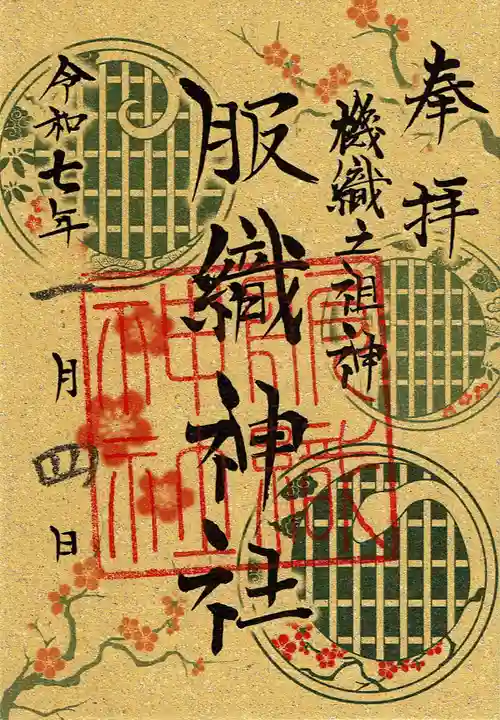 奉拝
機織之祖神
服織神社
令和七年
一月四日
服織神社